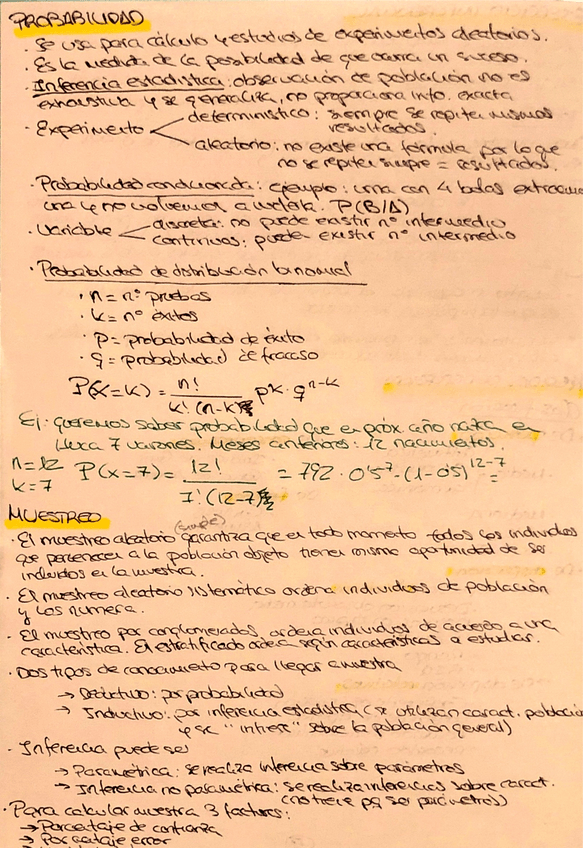 PROBABILIDAD
· Se usa para cálculo y estudios de experimentos aleatorios.
· Es la medida de la posibilidad de que ocurra un suceso.
· Inferencia estadística: observación de población no es
exhaustiva y se generaliza, no proporciona info. exacta
· Experimento
determinístico: siempre se repiten mismos
resultados.
aleatorio: no existe una fórmula por lo que
no se repiten siempre = resultados.
· Probabilidad condicionada: ejemplo: urna con 4 bolas extraemos
una y no volvemos a meterla. P(B/A)
· Variable
discreta: no puede existir nº intermedio
continuos: pueden existir nº intermedio
· Probabilidad de distribución binomial
· n = nº pruebas
· k = nº éxitos
· P = probabilidad de éxito
· q = probabilidad de fracaso
P(x=k) = n! / k! (n-k)! p^k · q^n-k
Ej: queremos saber probabilidad que en próx año nazca en
Lliria 7 varones. Meses anteriores: 12 nacimientos.
n=12
k=7
P(x=7) = 12! / 7! (12-7)! = 792 · 0'5^7 · (1-0'5)^12-7 =
MUESTREO
(simple)
· El muestreo aleatorio garantiza que en todo momento todos los individuos
que pertenecen a la población objeto tienen misma oportunidad de ser
incluidos en la muestra.
· El muestreo aleatorio sistemático ordena individuos de población
y los numera.
· El muestreo por conglomerados, ordena individuos de acuerdo a una
característica. El estratificado ordena según características a estudiar.
· Dos tipos de conocimiento para llegar a muestra
→ Deductivo: por probabilidad
→ Inductivo: por inferencia estadística (se utilizan caract. población
y se "infiere" sobre la población general)
· Inferencia puede ser
→ Paramétrica: se realiza inferencia sobre parámetros
→ Inferencia no paramétrica: se realiza inferencias sobre caract.
(no tiene pq ser parámetros)
· Para calcular muestra 3 factores:
→ Porcentaje de confianza
→ Porcentaje error